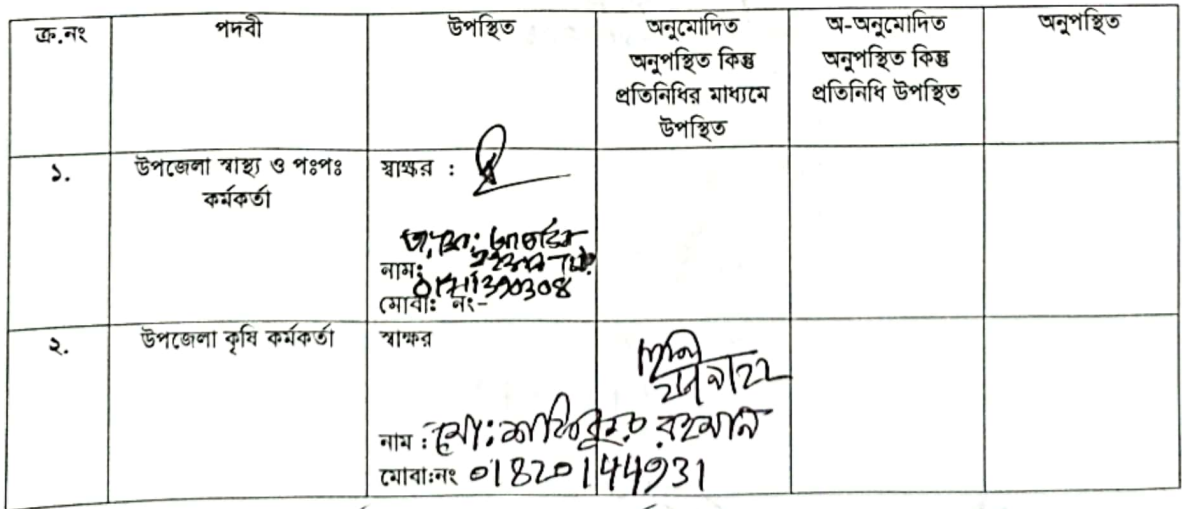 ক্র.নং পদবী উপস্থিত অনুমোদিত অনুপস্থিত কিন্তু প্রতিনিধির মাধ্যমে উপস্থিত অ-অনুমোদিত অনুপস্থিত কিন্তু প্রতিনিধি উপস্থিত অনুপস্থিত
১. উপজেলা স্বাস্থ্য ও পঃপঃ কর্মকর্তা স্বাক্ষর :
নাম:
মোবা: নং-
২. উপজেলা কৃষি কর্মকর্তা স্বাক্ষর
নাম : মো: রহমান
মোবা:নং 01820144931